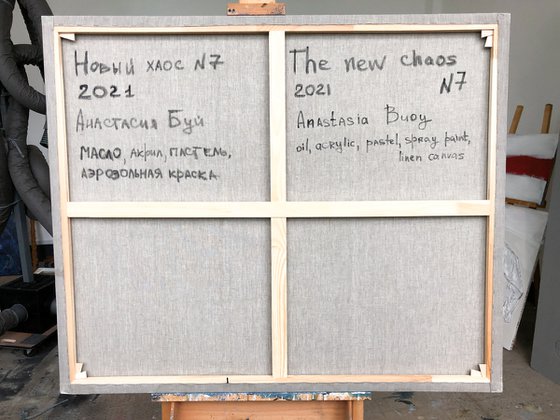 Новый хаос N7
2021
Анастасия Буй
масло, акрил, пастель,
аэрозольная краска
The new chaos
2021 N7
Anastasia Buoy
oil, acrylic, pastel, spray paint,
linen canvas